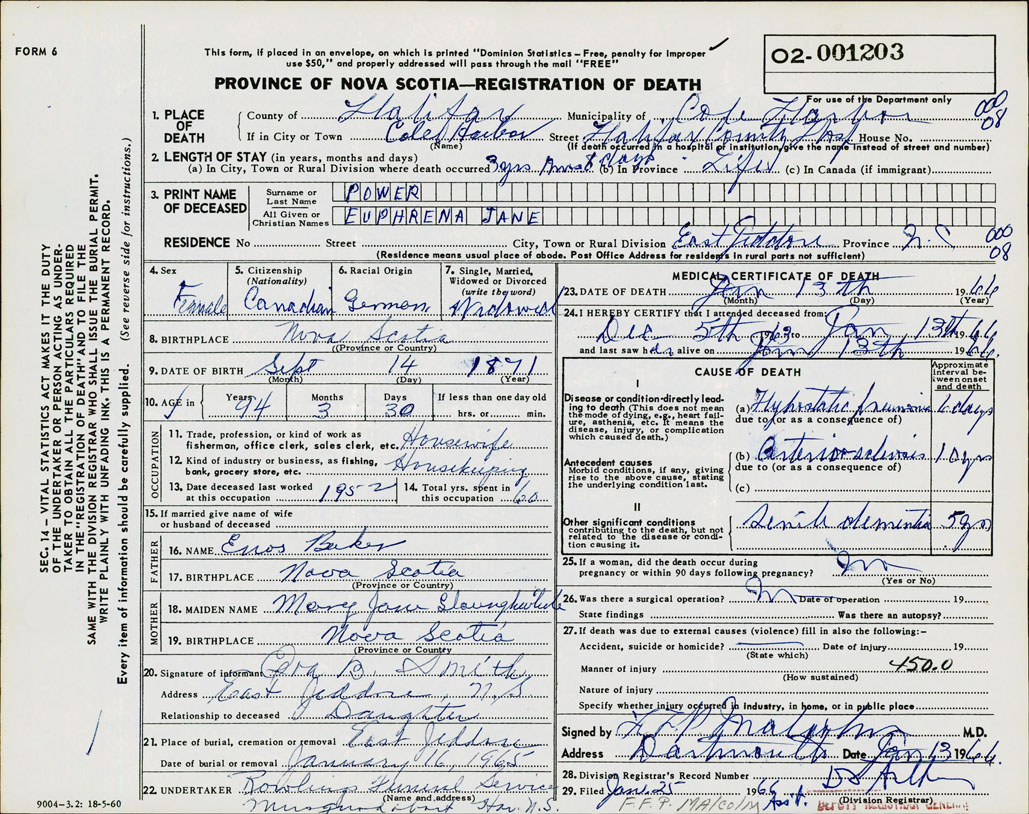 FORM 6
This form, if placed in an envelope, on which is printed "Dominion Statistics – Free, penalty for improper
use $50," and properly addressed will pass through the mail "FREE"
02-001203
PROVINCE OF NOVA SCOTIA—REGISTRATION OF DEATH
For use of the Department only
1. PLACE OF DEATH
County of Halifax Municipality of Cole Harbor 000 08
If in City or Town Cole Harbor Street Halifax County Hosp House No.
(Name) (If death occurred in a hospital or institution, give the name instead of street and number)
2. LENGTH OF STAY (in years, months and days)
(a) In City, Town or Rural Division where death occurred 3 yrs 8 days (b) In Province Life (c) In Canada (if immigrant)
3. PRINT NAME OF DECEASED
Surname or Last Name POWER
All Given or Christian Names EUPHRENA JANE
RESIDENCE No Street City, Town or Rural Division East Jeddore Province N.S 000 08
(Residence means usual place of abode. Post Office Address for residents in rural parts not sufficient)
4. Sex Female
5. Citizenship (Nationality) Canadian
6. Racial Origin German
7. Single, Married, Widowed or Divorced (write the word) Widowed
8. BIRTHPLACE Nova Scotia
(Province or Country)
9. DATE OF BIRTH Sept 14 1871
(Month) (Day) (Year)
10. AGE in Years 94 Months 3 Days 30 If less than one day old hrs. or min.
OCCUPATION
11. Trade, profession, or kind of work as
fisherman, office clerk, sales clerk, etc. Housewife
12. Kind of industry or business, as fishing,
bank, grocery store, etc. Housekeeping
13. Date deceased last worked
at this occupation 1952
14. Total yrs. spent in
this occupation 60
15. If married give name of wife
or husband of deceased
FATHER
16. NAME Enos Baker
17. BIRTHPLACE Nova Scotia
(Province or Country)
MOTHER
18. MAIDEN NAME Mary Jane Slaughwhite
19. BIRTHPLACE Nova Scotia
(Province or Country)
20. Signature of informant B. Smith
Address East Jeddore, N.S
Relationship to deceased Daughter
21. Place of burial, cremation or removal East Jeddore
Date of burial or removal January 16, 1965
22. UNDERTAKER Rowlings Funeral Service
(Name and address)
Musquodoboit Har. N.S.
MEDICAL CERTIFICATE OF DEATH
23. DATE OF DEATH Jan 13th 1966
(Month) (Day) (Year)
24. I HEREBY CERTIFY that I attended deceased from:
Dec 5th 1963 Jan 13th 1966
and last saw her alive on Jan 13th 1966
CAUSE OF DEATH
Approximate interval between onset and death
I
Disease or condition-directly leading
to death (This does not mean
the mode of dying, e.g., heart failure,
asthenia, etc. It means the
disease, injury, or complication
which caused death.)
(a) Hypostatic pneumonia 6 days
due to (or as a consequence of)
Antecedent causes
Morbid conditions, if any, giving
rise to the above cause, stating
the underlying condition last.
(b) Arteriosclerosis 10 yrs
due to (or as a consequence of)
(c)
II
Other significant conditions
contributing to the death, but not
related to the disease or condition
causing it.
Senile dementia 5 yrs
25. If a woman, did the death occur during
pregnancy or within 90 days following pregnancy? No
(Yes or No)
26. Was there a surgical operation? No Date of operation 19
State findings Was there an autopsy?
27. If death was due to external causes (violence) fill in also the following:–
Accident, suicide or homicide? Date of injury 19
(State which)
Manner of injury 450.0
(How sustained)
Nature of injury
Specify whether injury occurred in Industry, in home, or in public place
Signed by F F P Malcolm M.D.
Address Dartmouth Date Jan 13 1966.
28. Division Registrar's Record Number
29. Filed Jan. 25 1966
(Division Registrar)
F.F.P. MAlcolM Ass't. DEPUTY REGISTRAR GENERAL
9004–3.2: 18-5-60
SEC. 14 – VITAL STATISTICS ACT MAKES IT THE DUTY
OF THE UNDERTAKER OR PERSON ACTING AS UNDER-
TAKER TO OBTAIN ALL THE PARTICULARS REQUIRED
IN THE "REGISTRATION OF DEATH" AND TO FILE THE
SAME WITH THE DIVISION REGISTRAR WHO SHALL ISSUE THE BURIAL PERMIT.
WRITE PLAINLY WITH UNFADING INK. THIS IS A PERMANENT RECORD.
Every item of information should be carefully supplied. (See reverse side for instructions.)